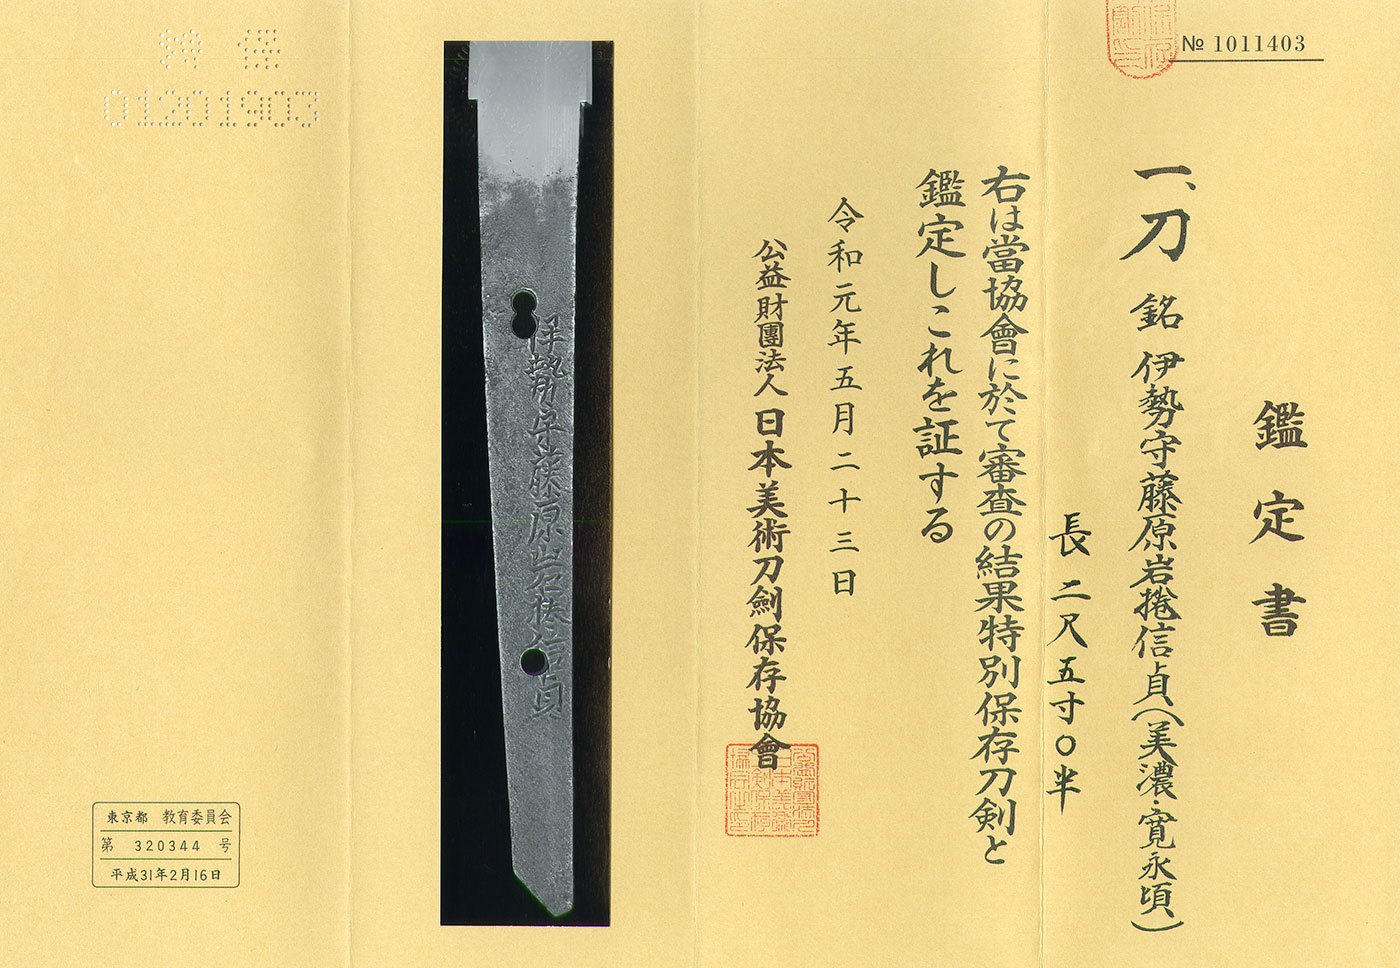 № 1011403
鑑定書
一、刀 銘 伊勢守藤原岩捲信貞(美濃・寛永頃)
長二尺五寸〇半
右は當協會に於て審査の結果特別保存刀剣と
鑑定しこれを証する
令和元年五月二十三日
公益財團法人日本美術刀劍保存協會
伊勢守藤原岩捲信貞
特保
01201903
東京都 教育委員会
第 320344 号
平成31年2月16日